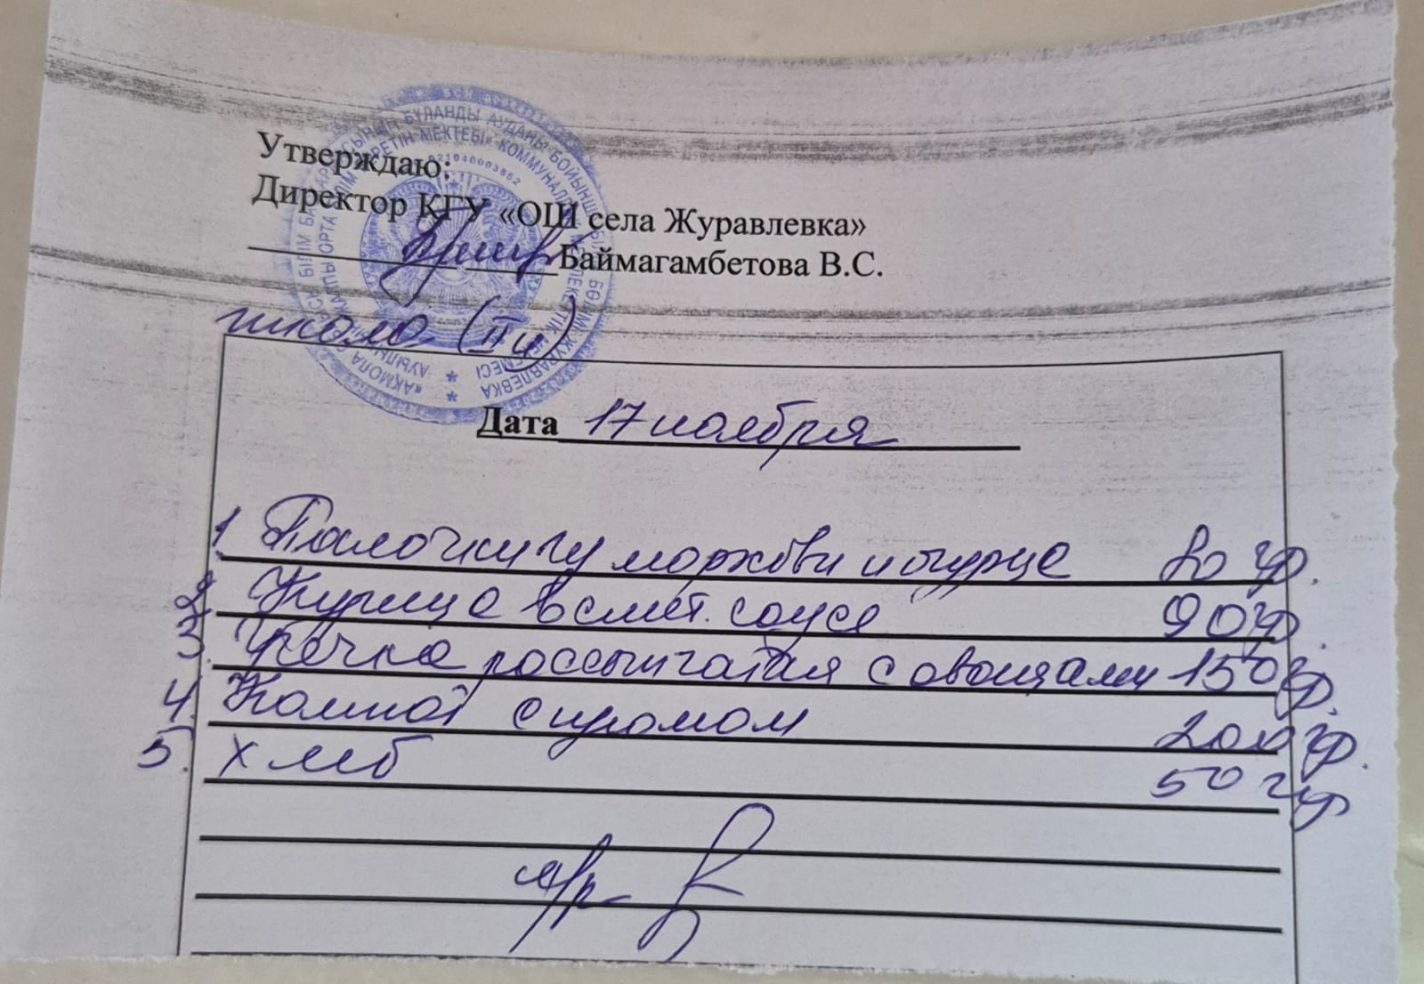 Утверждаю:
Директор КГУ «ОШ села Журавлевка»
Баймагамбетова В.С.
школа (II
Дата 17 ноября
1. Палочки моркови и огурца 80 гр.
2. Курица в смет. соусе 90 гр.
3. Гречка рассыпчатая с овощами 150 гр.
4. Компот с изюмом 200 гр.
5. Хлеб 50 гр